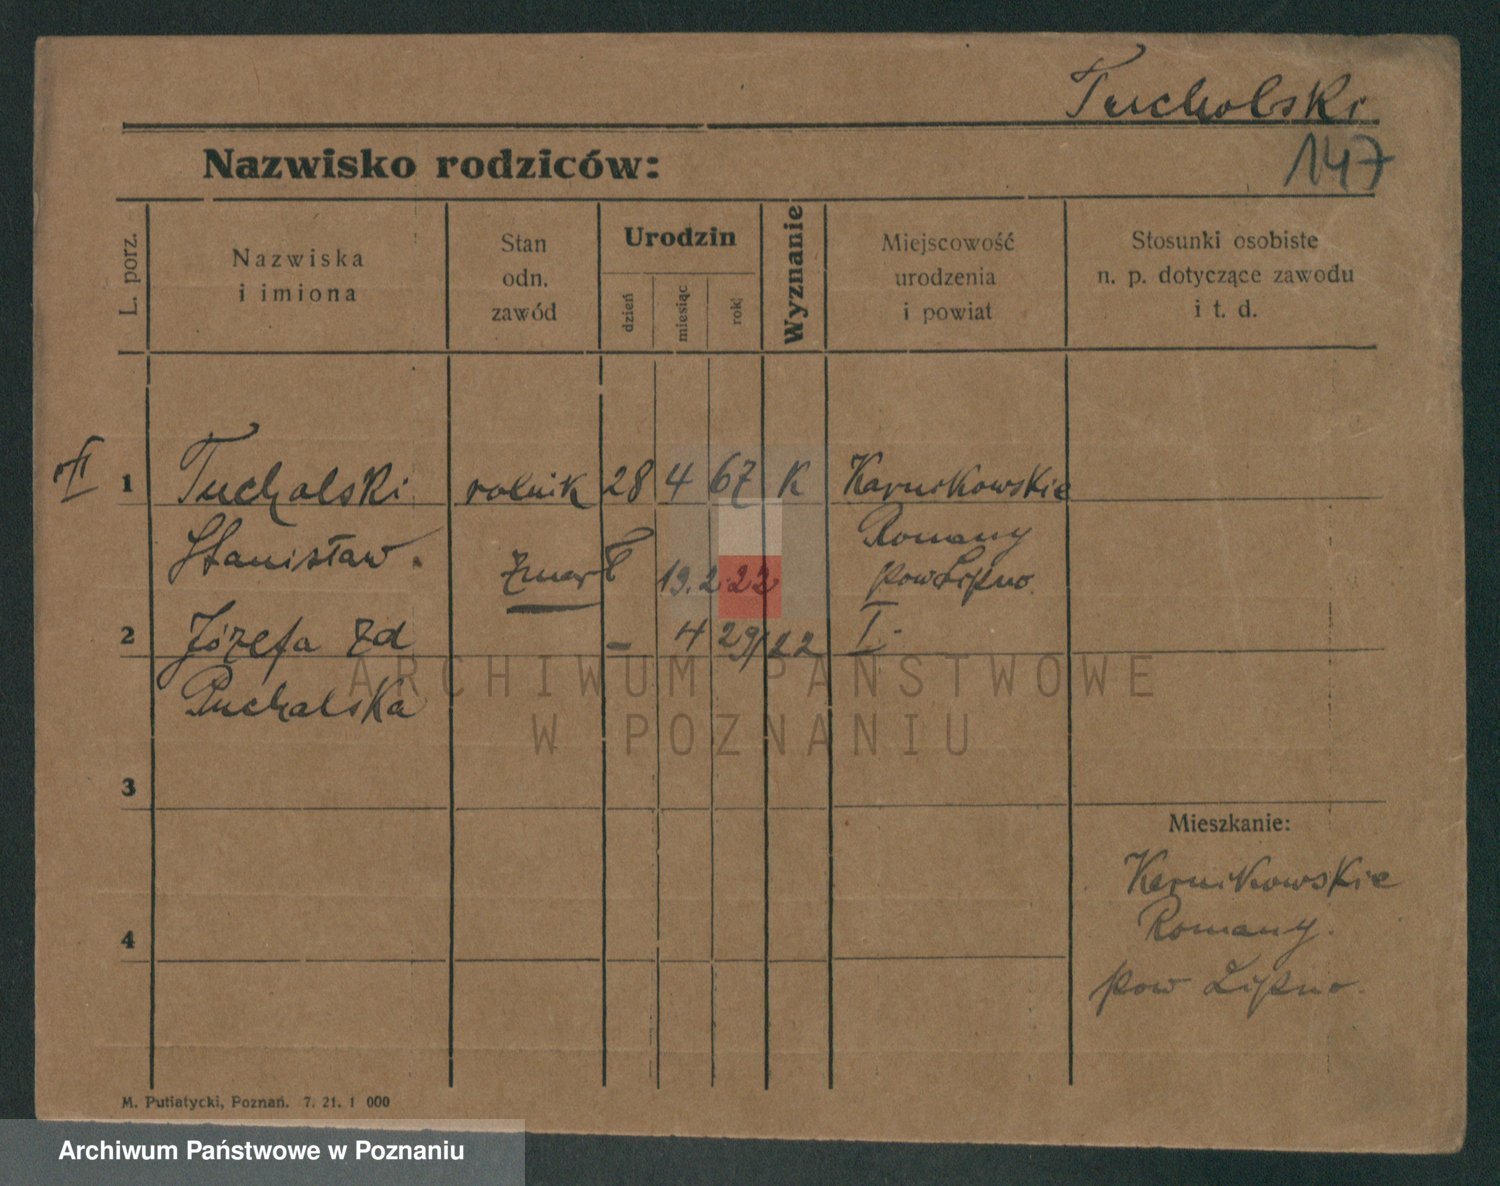 Tucholski
147
Nazwisko rodziców:
L. porz.
Nazwiska
i imiona
Stan
odn.
zawód
Urodzin
dzień
miesiąc
rok
Wyznanie
Miejscowość
urodzenia
i powiat
Stosunki osobiste
n. p. dotyczące zawodu
i t. d.
1 Tucholski rolnik 28 4 67 K Karnikowskie
Stanisław. Romany
zmarł 19.2.22 pow Lipno.
2 Józefa zd - 4 29/22 I.
Puchalska
3
Mieszkanie:
Karnikowskie
4 Romany.
pow Lipno.
M. Putiatycki, Poznań. 7. 21. 1 000
ARCHIWUM PAŃSTWOWE
W POZNANIU
Archiwum Państwowe w Poznaniu